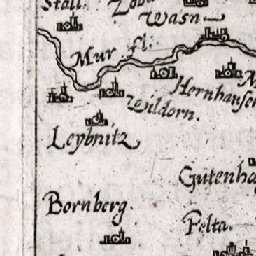 Stall
Zoba
Wasn
Mur fl.
Hernhausen
Wildorn.
Leybnitz
Gutenha
Bornberg.
Pelta.